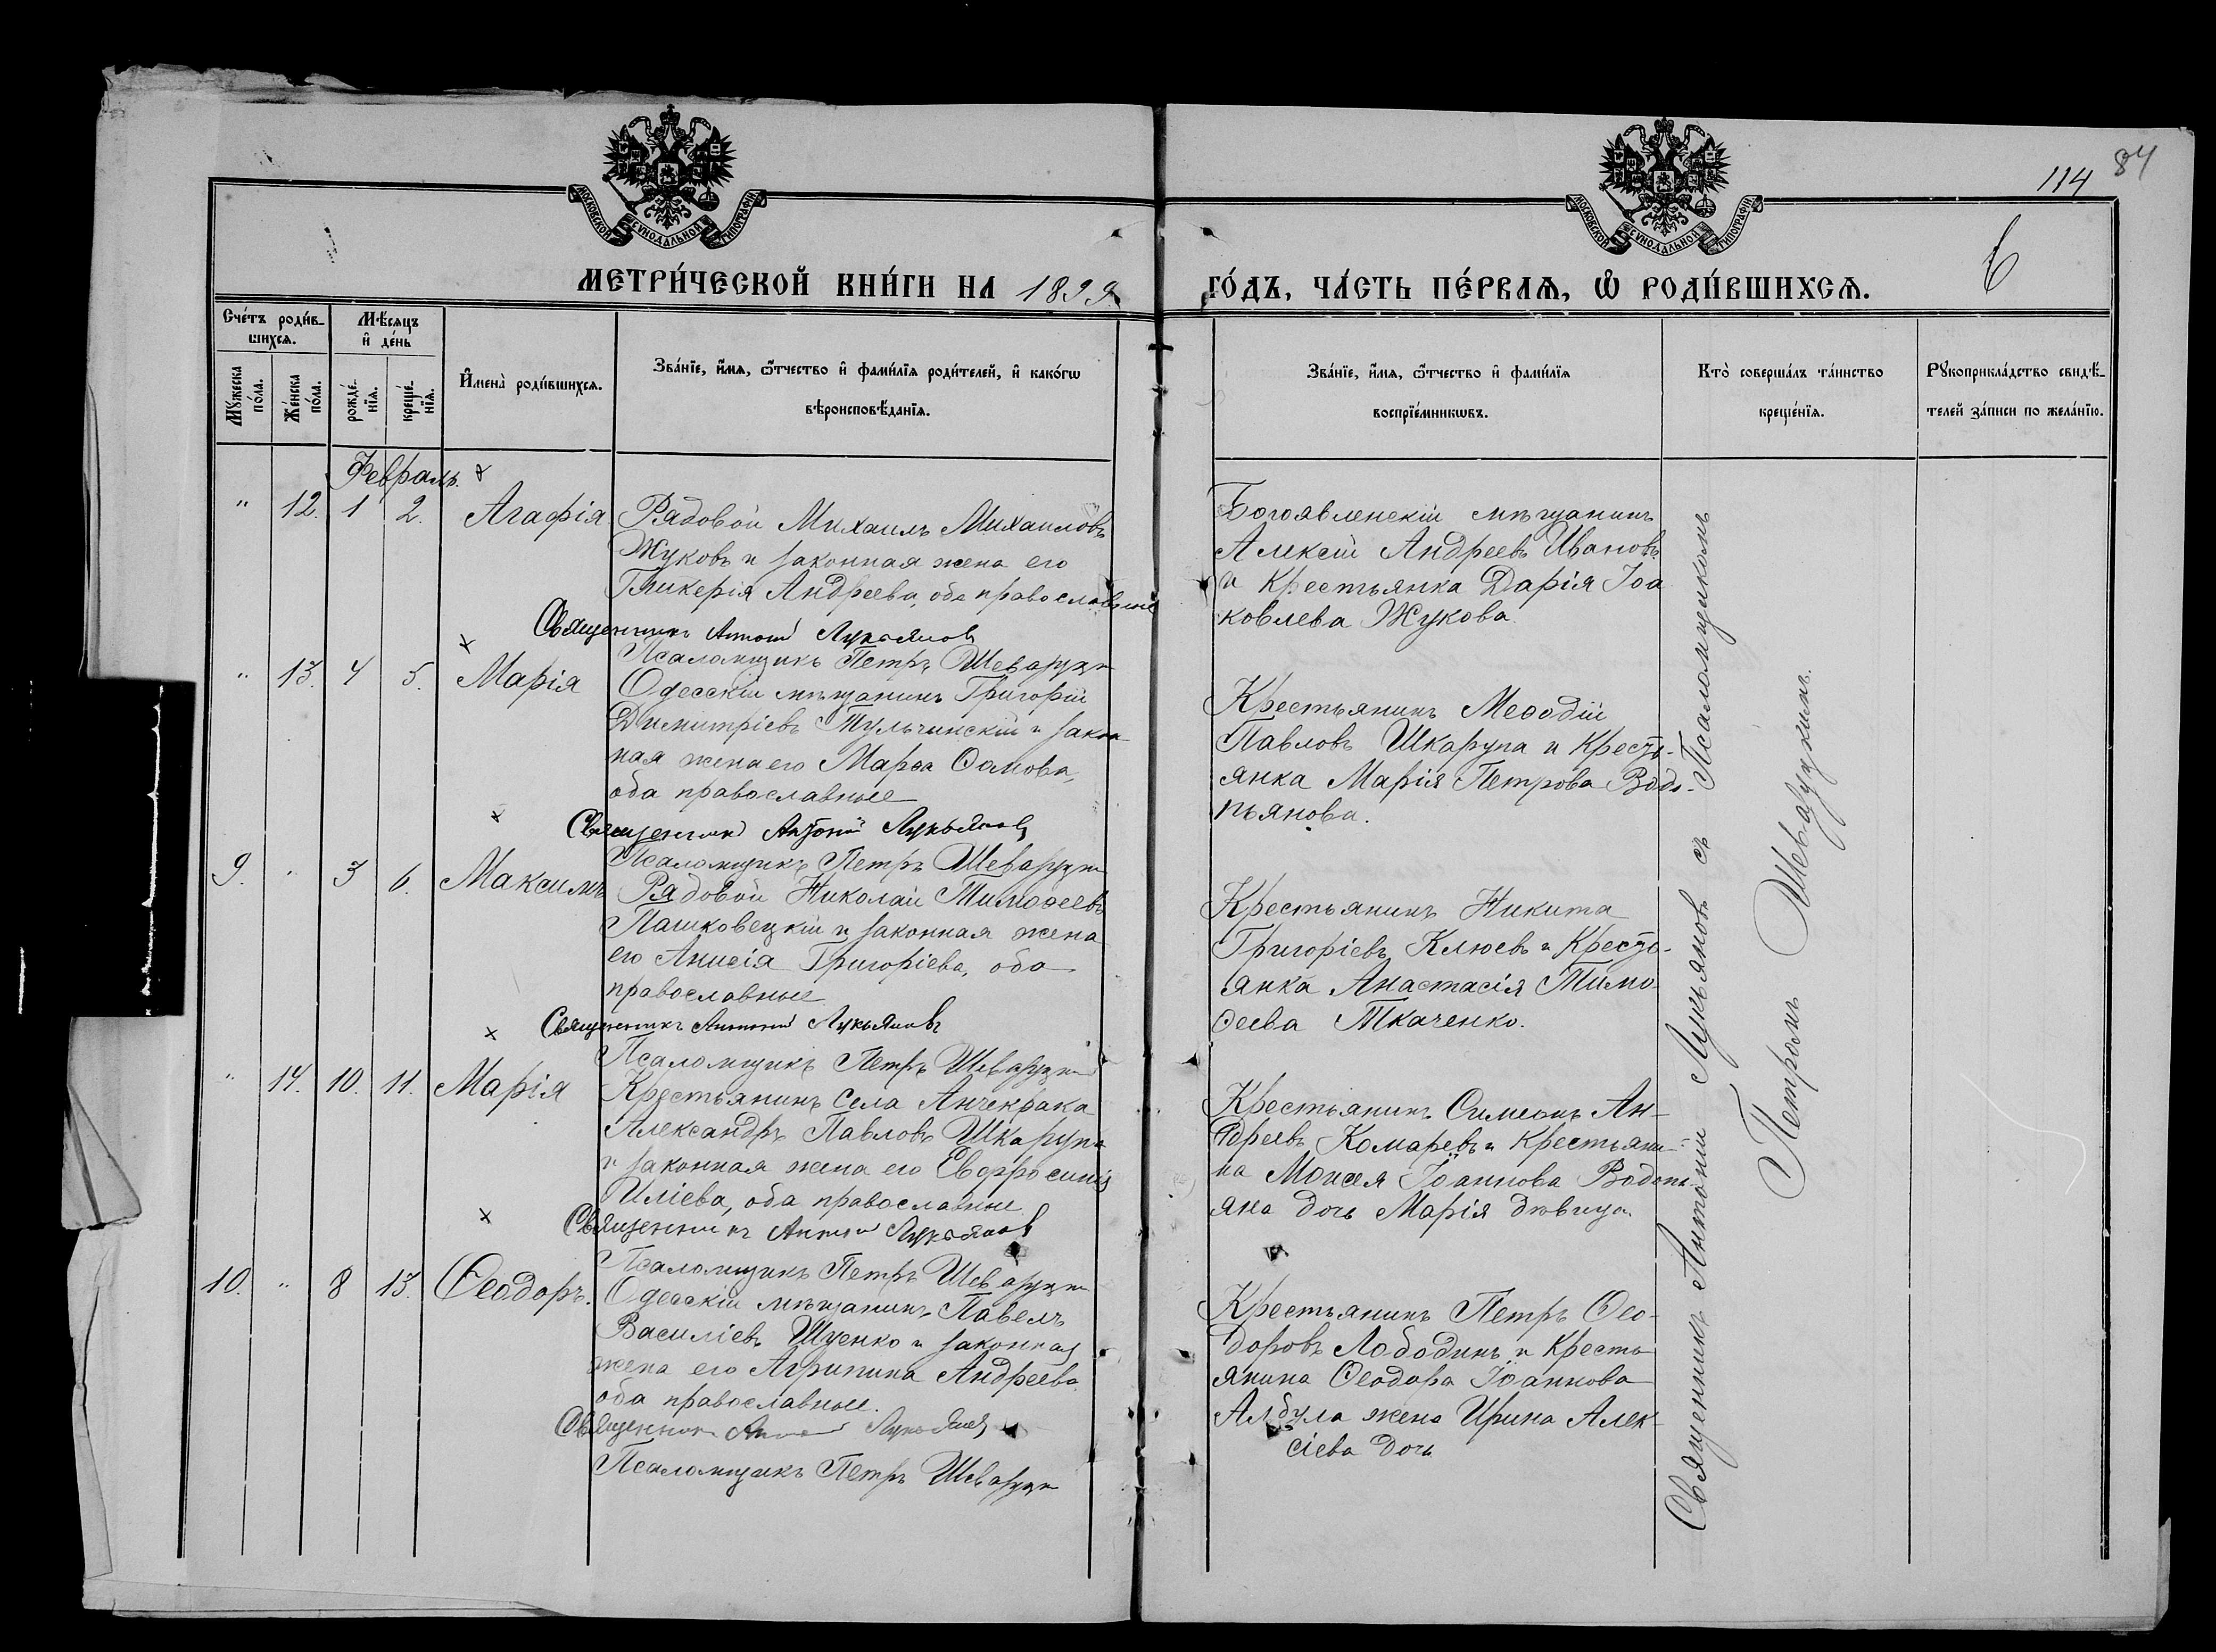 МОСКОВСКОЙ СѴНОДАЛЬНОЙ ТИПОГРАФІИ
МОСКОВСКОЙ СѴНОДАЛЬНОЙ ТИПОГРАФІИ
114 84
6
МЕТРИ́ЧЕСКОЙ КНИ́ГИ НА 1899 ГО́ДЪ, ЧА́СТЬ ПЕ́РВАѦ, Ѡ҆ РОДИ́ВШИХСѦ.
Сче́тъ роди́в-
шихсѧ.
Мѣ́сѧцъ
и҆ де́нь
Мꙋ́жеска
по́ла.
Же́нска
по́ла.
рожде́-
нїѧ.
креще́-
нїѧ.
И҆мена̀ роди́вшихсѧ.
Зва́нїе, и҆́мѧ, ѻ҆́тчество и҆ фами́лїѧ роди́телей, и҆ како́гѡ
вѣроисповѣ́данїѧ.
Зва́нїе, и҆́мѧ, ѻ҆́тчество и҆ фами́лїѧ
воспрїе́мникѡвъ.
Кто̀ соверша́лъ та́инство
креще́нїѧ.
Рꙋкоприкла́дство свидѣ́-
телей за́писи по жела́нїю.
Февраль.
" 12. 1 2. Агафія
Рядовой Михаилъ Михаиловъ
Жуковъ и законная жена его
Гликерія Андреева, оба православные
Священникъ Антоній Лукьяновъ
Псаломщикъ Петръ Шеваруцки
Богоявленскій мѣщанинъ
Алексій Андреевъ Ивановъ
и Крестьянка Дарія Іоа
ковлева Жукова
" 13. 4 5. Марія
Одесскій мѣщанинъ Григорій
Димитріевъ Тульчинскій и закон
ная жена его Марѳа Ѳомова,
оба православные
Священникъ Антоній Лукьяновъ
Псаломщикъ Петръ Шеваруцки
Крестьянинъ Меѳодій
Павловъ Шкарупа и Кресть-
янка Марія Петрова Водо-
пьянова.
9. " 3 6. Максимъ
Рядовой Николай Тимоѳеевъ
Пашковецкій и законная жена
его Анисія Григоріева, оба
православные
Священникъ Антоній Лукьяновъ
Псаломщикъ Петръ Шеваруцки
Крестьянинъ Никита
Григоріевъ Клюевъ и Кресть-
янка Анастасія Тимо-
ѳеева Ткаченко.
" 14. 10. 11. Марія
Крестьянинъ села Анчекрака
Александръ Павловъ Шкарупа
и законная жена его Евфросинія
Иліева, оба православные
Священникъ Антоній Лукьяновъ
Псаломщикъ Петръ Шеваруцки
Крестьянинъ Симеонъ Ан-
дреевъ Комаревъ и Крестьяни-
на Моисея Іоаннова Водопь-
яна дочь Марія дѣвица
10. " 8 13. Ѳеодоръ.
Одесскій мѣщанинъ Павелъ
Василіевъ и законная
жена его Агрипина Андреева
оба православные.
Священникъ Антоній Лукьяновъ
Псаломщикъ Петръ Шеваруцки
Крестьянинъ Петръ Ѳео-
доровъ Лободинъ и Кресть
янина Ѳеодора Іоаннова
Албула жена Ирина Алек-
сіева дочь
Священникъ Антоній Лукьяновъ съ Псаломщикомъ
Петромъ Шеваруцкимъ.